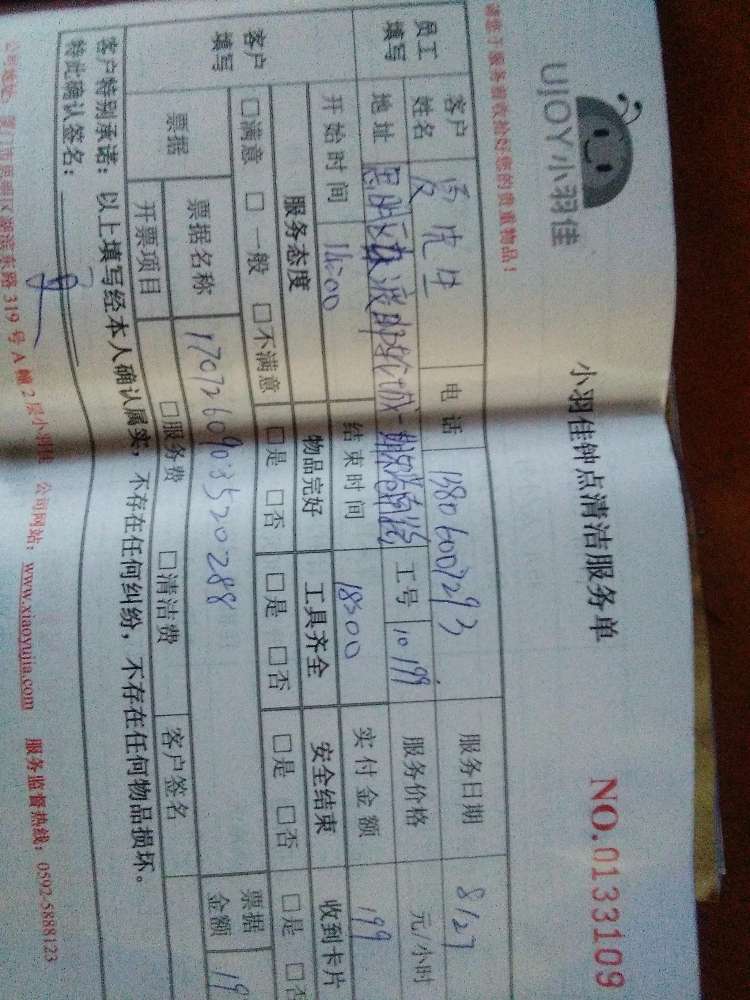 UJOY小羽佳
小羽佳钟点清洁服务单
NO.0133109
请您于服务前收拾好您的贵重物品！
员工填写 客户姓名 先生 电话 13806007293 服务日期 8/27
地址 工号 10199 服务价格 元/小时
开始时间 14:00 结束时间 18:00 实付金额 199
客户填写 服务态度 物品完好 工具齐全 安全结束 收到卡片
□满意 □一般 □不满意 □是 □否 □是 □否 □是 □否 □是 □否
票据 票据名称 1707260903520288 票据金额 19
开票项目 □服务费 □清洁费 客户签名
客户特别承诺：以上填写经本人确认属实，不存在任何纠纷，不存在任何物品损坏。
特此确认签名：
公司地址：厦门市思明区湖滨东路319号A幢2层小羽佳 公司网站：www.xiaoyujia.com 服务监督热线：0592-5888123